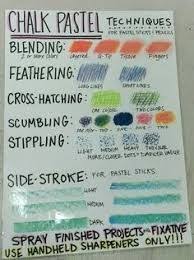 CHALK PASTEL TECHNIQUES
FOR PASTEL STICKS & PENCILS
BLENDING:
2 or More Colors
Layered Q-Tip Tissue Fingers
FEATHERING:
LONG LINES SHORT LINES
CROSS-HATCHING:
ONE COLOR TWO COLORS
SCUMBLING:
ONE COLOR TWO
STIPPLING:
LIGHT MEDIUM HEAVY TWO COLOR
MORE/CLOSER DOTS = DARKER VALUE
SIDE-STROKE: FOR PASTEL STICKS
LIGHT
MEDIUM
DARK
SPRAY FINISHED PROJECTS FIXATIVE
USE HANDHELD SHARPENERS ONLY!!!